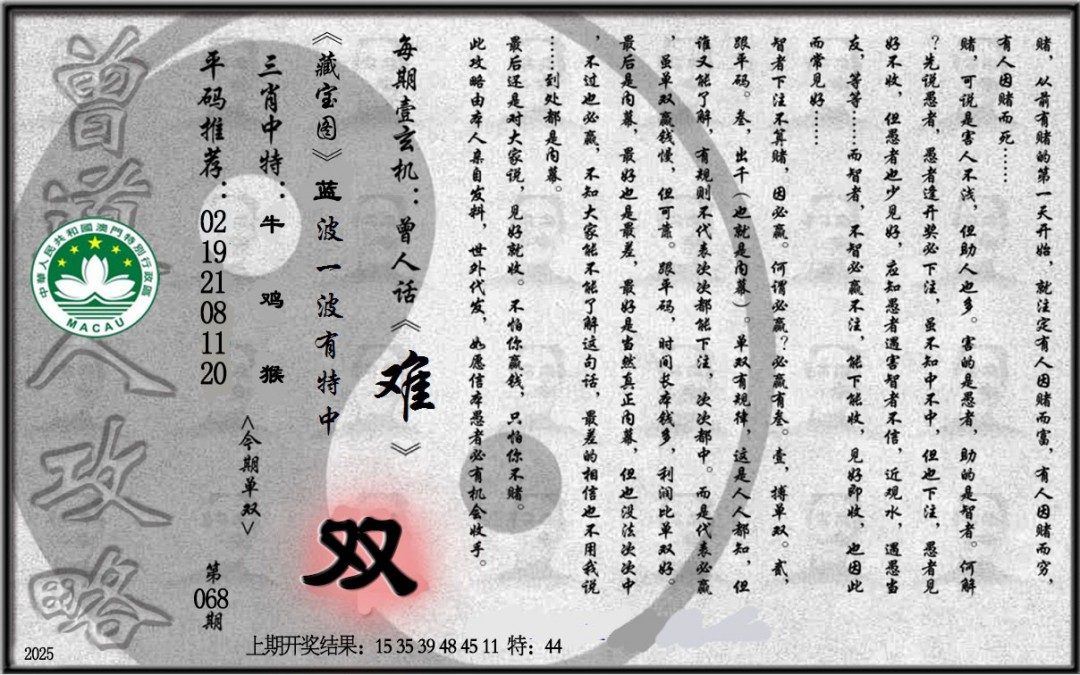 赌，从前有赌的第一天开始，就注定有人因赌而富，有人因赌而穷，
有人因赌而死……
赌，可说是害人不浅，但助人也多。害的是愚者，助的是智者。何解
？先说愚者，愚者逢开奖必下注，虽不知中不中，但也下注，愚者见
好不收，但愚者也少见好，应知愚者遇害智者不信，近观水，遇愚当
友，等等……而智者，不智必赢不注，能下能收，见好即收，也因此
而常见好……
智者下注不算赌，因必赢。何谓必赢？必赢有叁。壹，搏单双。贰，
跟平码。叁，出千（也就是内幕）。单双有规律，这是人人都知，但
谁又能了解，有规则不代表次次都能下注，次次都中。而是代表必赢
，虽单双赢钱慢，但可靠。跟平码，时间长本钱多，利润比单双好。
最后是内幕，最好也是最差，最好是当然真正内幕，但也没法次次中
，不过也必赢，不知大家能不能了解这句话，最差的相信也不用我说
……到处都是内幕。
最后还是对大家说，见好就收。不怕你赢钱，只怕你不赌。
此攻略由本人亲自发料，世外代发，如愿信本愚者必有机会收手。
每期壹玄机：曾人话《难》
《藏宝图》蓝波一波有特中
双
三肖中特：牛 鸡 猴
<今期单双>
平码推荐：02 19 21 08 11 20
第068期
曾道人攻略
中華人民共和國澳門特別行政區
MACAU
上期开奖结果：15 35 39 48 45 11 特：44
2025